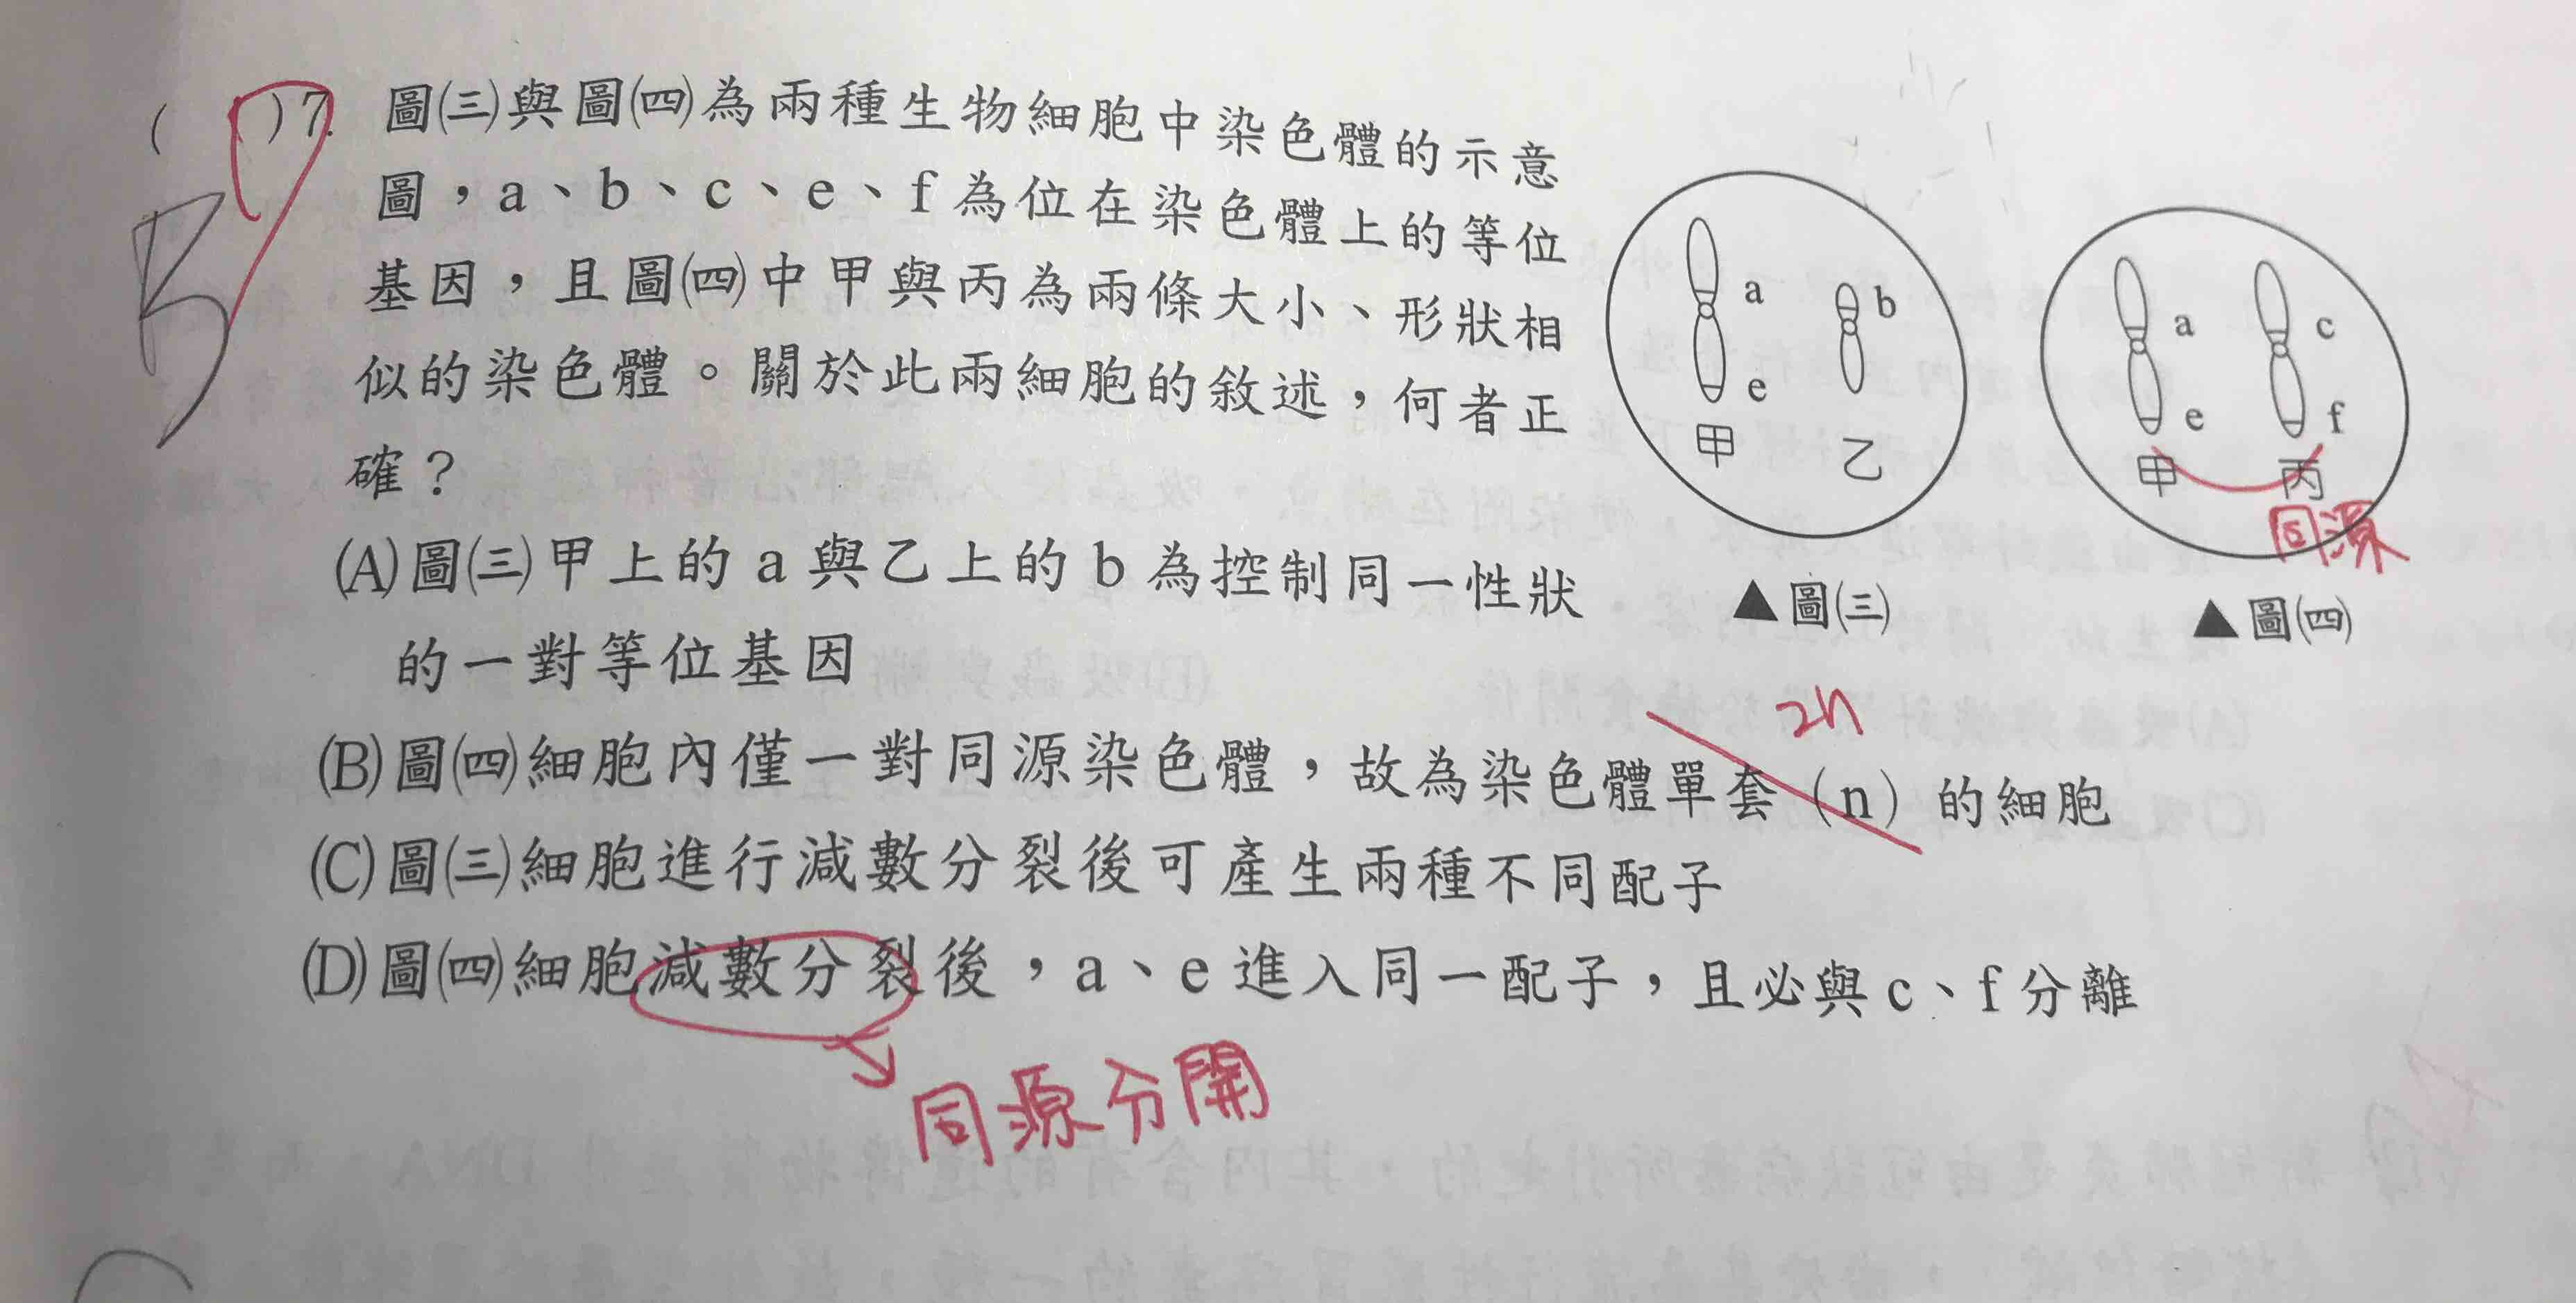 ( )7. 圖㈢與圖㈣為兩種生物細胞中染色體的示意
圖，a、b、c、e、f為位在染色體上的等位
基因，且圖㈣中甲與丙為兩條大小、形狀相
似的染色體。關於此兩細胞的敘述，何者正
確？
(A)圖㈢甲上的a與乙上的b為控制同一性狀
的一對等位基因
(B)圖㈣細胞內僅一對同源染色體，故為染色體單套（n）的細胞
2n
(C)圖㈢細胞進行減數分裂後可產生兩種不同配子
(D)圖㈣細胞減數分裂後，a、e進入同一配子，且必與c、f分離
同源分開
a b
e
甲 乙
▲圖㈢
a c
e f
甲 丙
同源
▲圖㈣